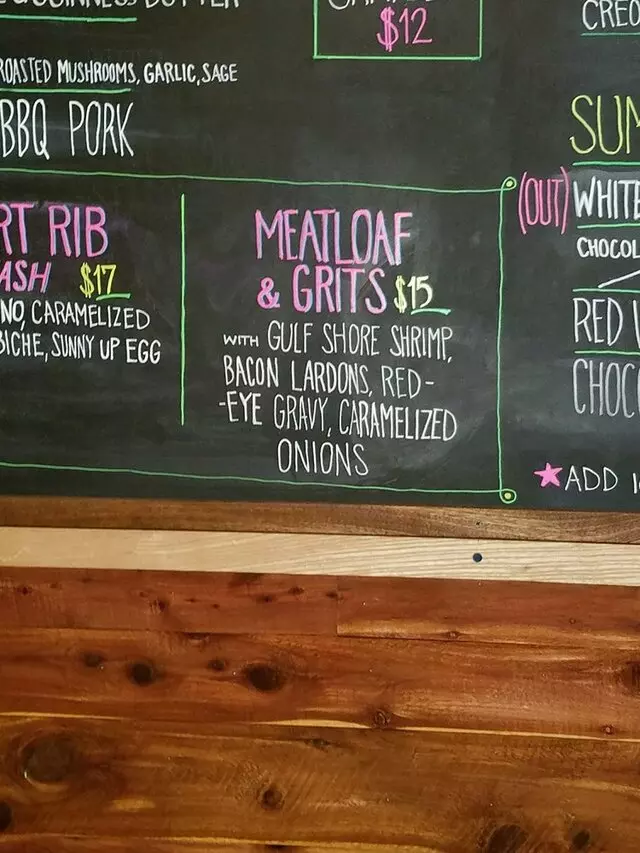 $12
ROASTED MUSHROOMS, GARLIC, SAGE
BBQ PORK
RT RIB
ASH $17
NO, CARAMELIZED
BICHE, SUNNY UP EGG
MEATLOAF
& GRITS $15
WITH GULF SHORE SHRIMP,
BACON LARDONS, RED-
-EYE GRAVY, CARAMELIZED
ONIONS
CREO
SUM
(OUT) WHITE
CHOCOL
RED V
CHOC
ADD